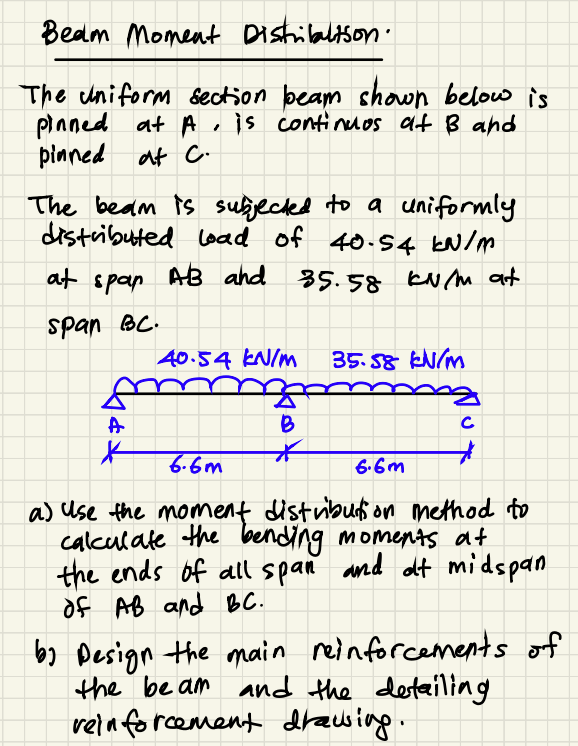 Beam Moment Distribution.
The uniform section beam shown below is
pinned at A, is continuos at B and
pinned at C.
The beam is subjected to a uniformly
distributed load of 40.54 kN/m
at span AB and 35.58 kN/m at
span BC.
40.54 kN/m 35.58 kN/m
A B C
6.6m 6.6m
a) Use the moment distribution method to
calculate the bending moments at
the ends of all span and at midspan
of AB and BC.
b) Design the main reinforcements of
the beam and the detailing
reinforcement drawing.